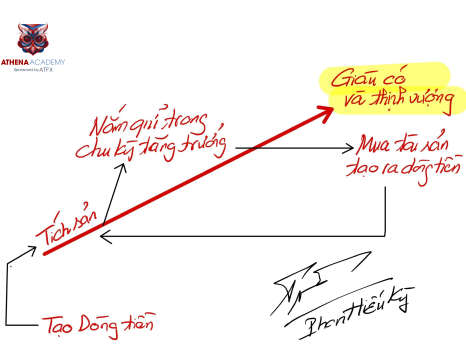 ATHENA ACADEMY
Sponsored by ATFX
Giàu có
và thịnh vượng
Nắm giữ trong
chu kỳ tăng trưởng
Mua tài sản
tạo ra dòng tiền
Tích sản
Tạo Dòng tiền
Phan Hiếu Kỳ